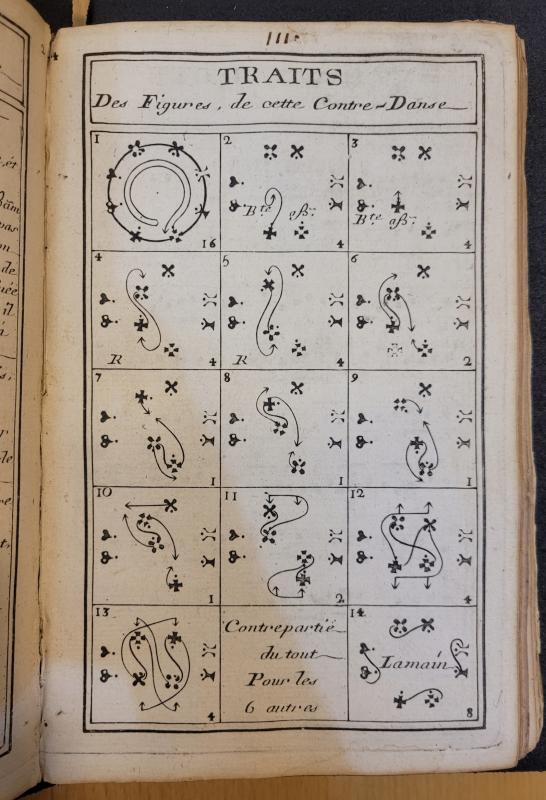 111.
TRAITS
Des Figures, de cette Contre-Danse
1
16
2
Bte. gss.
4
3
Bte. gss.
4
4
R
4
5
R
4
6
2
7
1
8
1
9
1
10
1
11
2
12
4
13
4
Contrepartie
du tout
Pour les
6 autres
14
Lamain
8